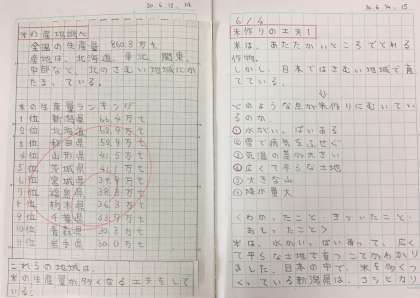 30.6.13, 14
米の産地調べ
全国の生産量 860.3万t
産地は、北海道、東北、関東、
中部など、北のさむい地域にか
たまっている。
米の生産量ランキング
1位 新潟県
2位 北海道
3位 秋田県
4位 山形県
5位 茨城県
6位 宮城県
7位 福島県
8位 栃木県
9位 千葉県
10位 青森県
11位 岩手県
これらの地域は、
米の生産量が多くなる工夫をして
いる。
30.6.14, 15
6/4
米作りの工夫1
米は、あたたかいところでとれる
作物。
しかし、日本ではさむい地域で育
てている。
どのような土地が米作りにむいてい
るのか
①水がいっぱいある
②雪で病気をふせぐ
③気温の差が大きい
④広くて平らな土地
⑤大きな山
⑥降水量大
〈わかったこと、きづいたこと、
あしたこと〉
米は、水がいっぱいあって、広く
て平らな土地で育つことがわかり
ました。日本の中で、米を多くつ
くっている新潟県は、コシヒカリ